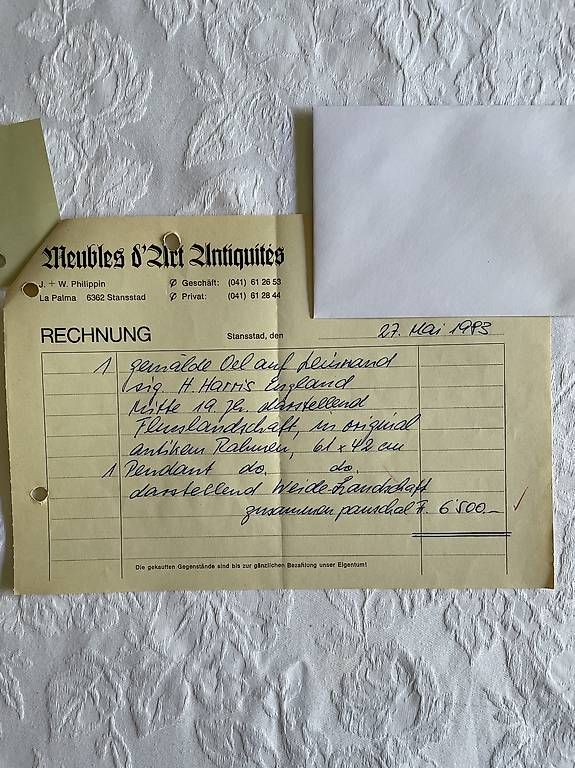 Meubles d'Art Antiquités
J. + W. Philippin Ø Geschäft: (041) 61 26 53
La Palma 6362 Stansstad Ø Privat: (041) 61 28 44
RECHNUNG Stansstad, den 27. Mai 1983
1 gemälde Oel auf Leinwand
sig. H. Harris England
Mitte 19. Jh. darstellend
Flusslandschaft, im original
antikem Rahmen, 61 x 42 cm
1 Pendant do. do.
darstellend Weide-Landschaft
zusammen pauschal Fr. 6'500.—
Die gekauften Gegenstände sind bis zur gänzlichen Bezahlung unser Eigentum!